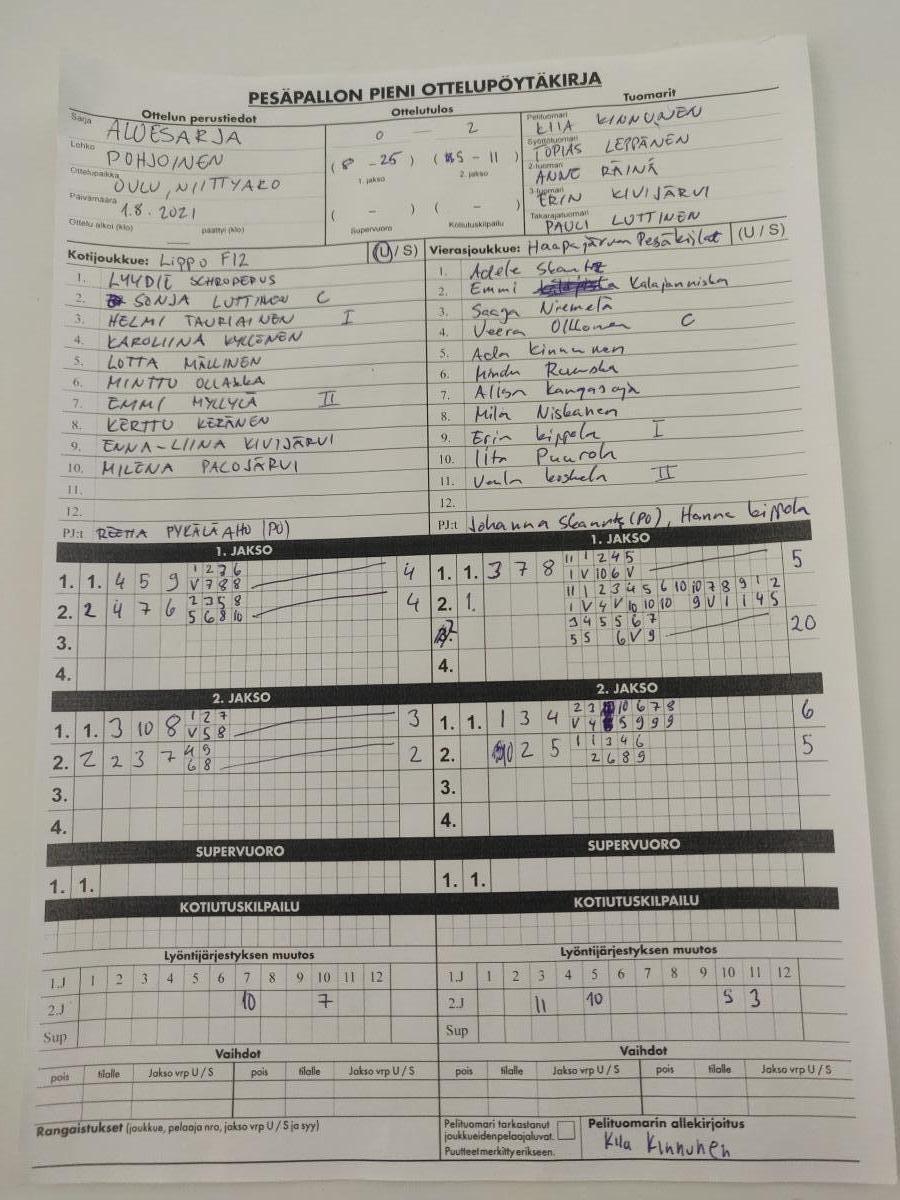 PESÄPALLON PIENI OTTELUPÖYTÄKIRJA
Ottelun perustiedot
Ottelutulos
Tuomarit
Sarja ALUESARJA
Lohko POHJOINEN
Ottelupaikka OULU, NIITTYARO
Päivämäärä 1.8.2021
Ottelu alkoi (klo) päättyi (klo)
0 — 2
(8 - 25) ( 5 - 11 )
1. jakso 2. jakso
( - ) ( - )
Supervuoro Kotiutuskilpailu
Pelituomari KIIA KINNUNEN
Syöttötuomari TOPIAS LEPPÄNEN
2-tuomari ANNE RÄINÄ
3-tuomari ERIN KIVIJÄRVI
Takarajatuomari PAULI LUTTINEN
Kotijoukkue: Lippo F12 (U/S)
1. LYYDIE SCHRODERUS
2. SONJA LUTTINEN C
3. HELMI TAURIAINEN I
4. KAROLIINA KYLLÖNEN
5. LOTTA MÄLLINEN
6. MINTTU OLLAKKA
7. EMMI MYLLYLÄ II
8. KERTTU KERÄNEN
9. ENNA-LIINA KIVIJÄRVI
10. MILENA PALOJÄRVI
11.
12.
PJ:t REETTA PYKÄLÄAHO (PO)
Vierasjoukkue: Haapajärven Pesäkiilat (U/S)
1. Adele Skantz
2. Emmi Kalajanniska
3. Saaga Niemelä
4. Veera Olkkonen C
5. Ada Kinnunen
6. Ruuska
7. Alisa Kangasoja
8. Mila Niskanen
9. Erin Kippola I
10. Iita Puurola
11. Venla Koskela II
12.
PJ:t Johanna Skantz (PO), Hanna Kippola
1. JAKSO
1. 1. 4 5 9 V 1 2 3 6 4
7 8 8
2. 2 4 7 6 2 3 5 8 4
5 6 8 10
3.
4.
1. JAKSO
1. 1. 3 7 8 11 1 2 4 5 5
1 V 10 6 V
2. 1. 11 1 2 3 4 5 6 10 10 7 8 9 1 2
1 V 4 V 10 10 10 9 V 1 1 4 5
3 4 5 5 6 7 20
5 5 6 V 9
4.
2. JAKSO
1. 1. 3 10 8 1 2 7 3
V 5 8
2. 2 2 3 7 4 9 2
6 8
3.
4.
2. JAKSO
1. 1. 1 3 4 2 3 10 6 7 8 6
V 4 5 9 9 9
2. 10 2 5 1 1 3 4 6 5
2 6 8 9
3.
4.
SUPERVUORO
1. 1.
SUPERVUORO
1. 1.
KOTIUTUSKILPAILU
KOTIUTUSKILPAILU
Lyöntijärjestyksen muutos
1.J 1 2 3 4 5 6 7 8 9 10 11 12
2.J 10 7
Sup
Lyöntijärjestyksen muutos
1.J 1 2 3 4 5 6 7 8 9 10 11 12
2.J 11 10 5 3
Sup
Vaihdot
pois tilalle Jakso vrp U / S pois tilalle Jakso vrp U / S
Vaihdot
pois tilalle Jakso vrp U / S pois tilalle Jakso vrp U / S
Rangaistukset (joukkue, pelaaja nro, jakso vrp U / S ja syy)
Pelituomari tarkastanut
joukkueidenpelaajaluvat.
Puutteet merkitty erikseen.
Pelituomarin allekirjoitus
Kiia Kinnunen